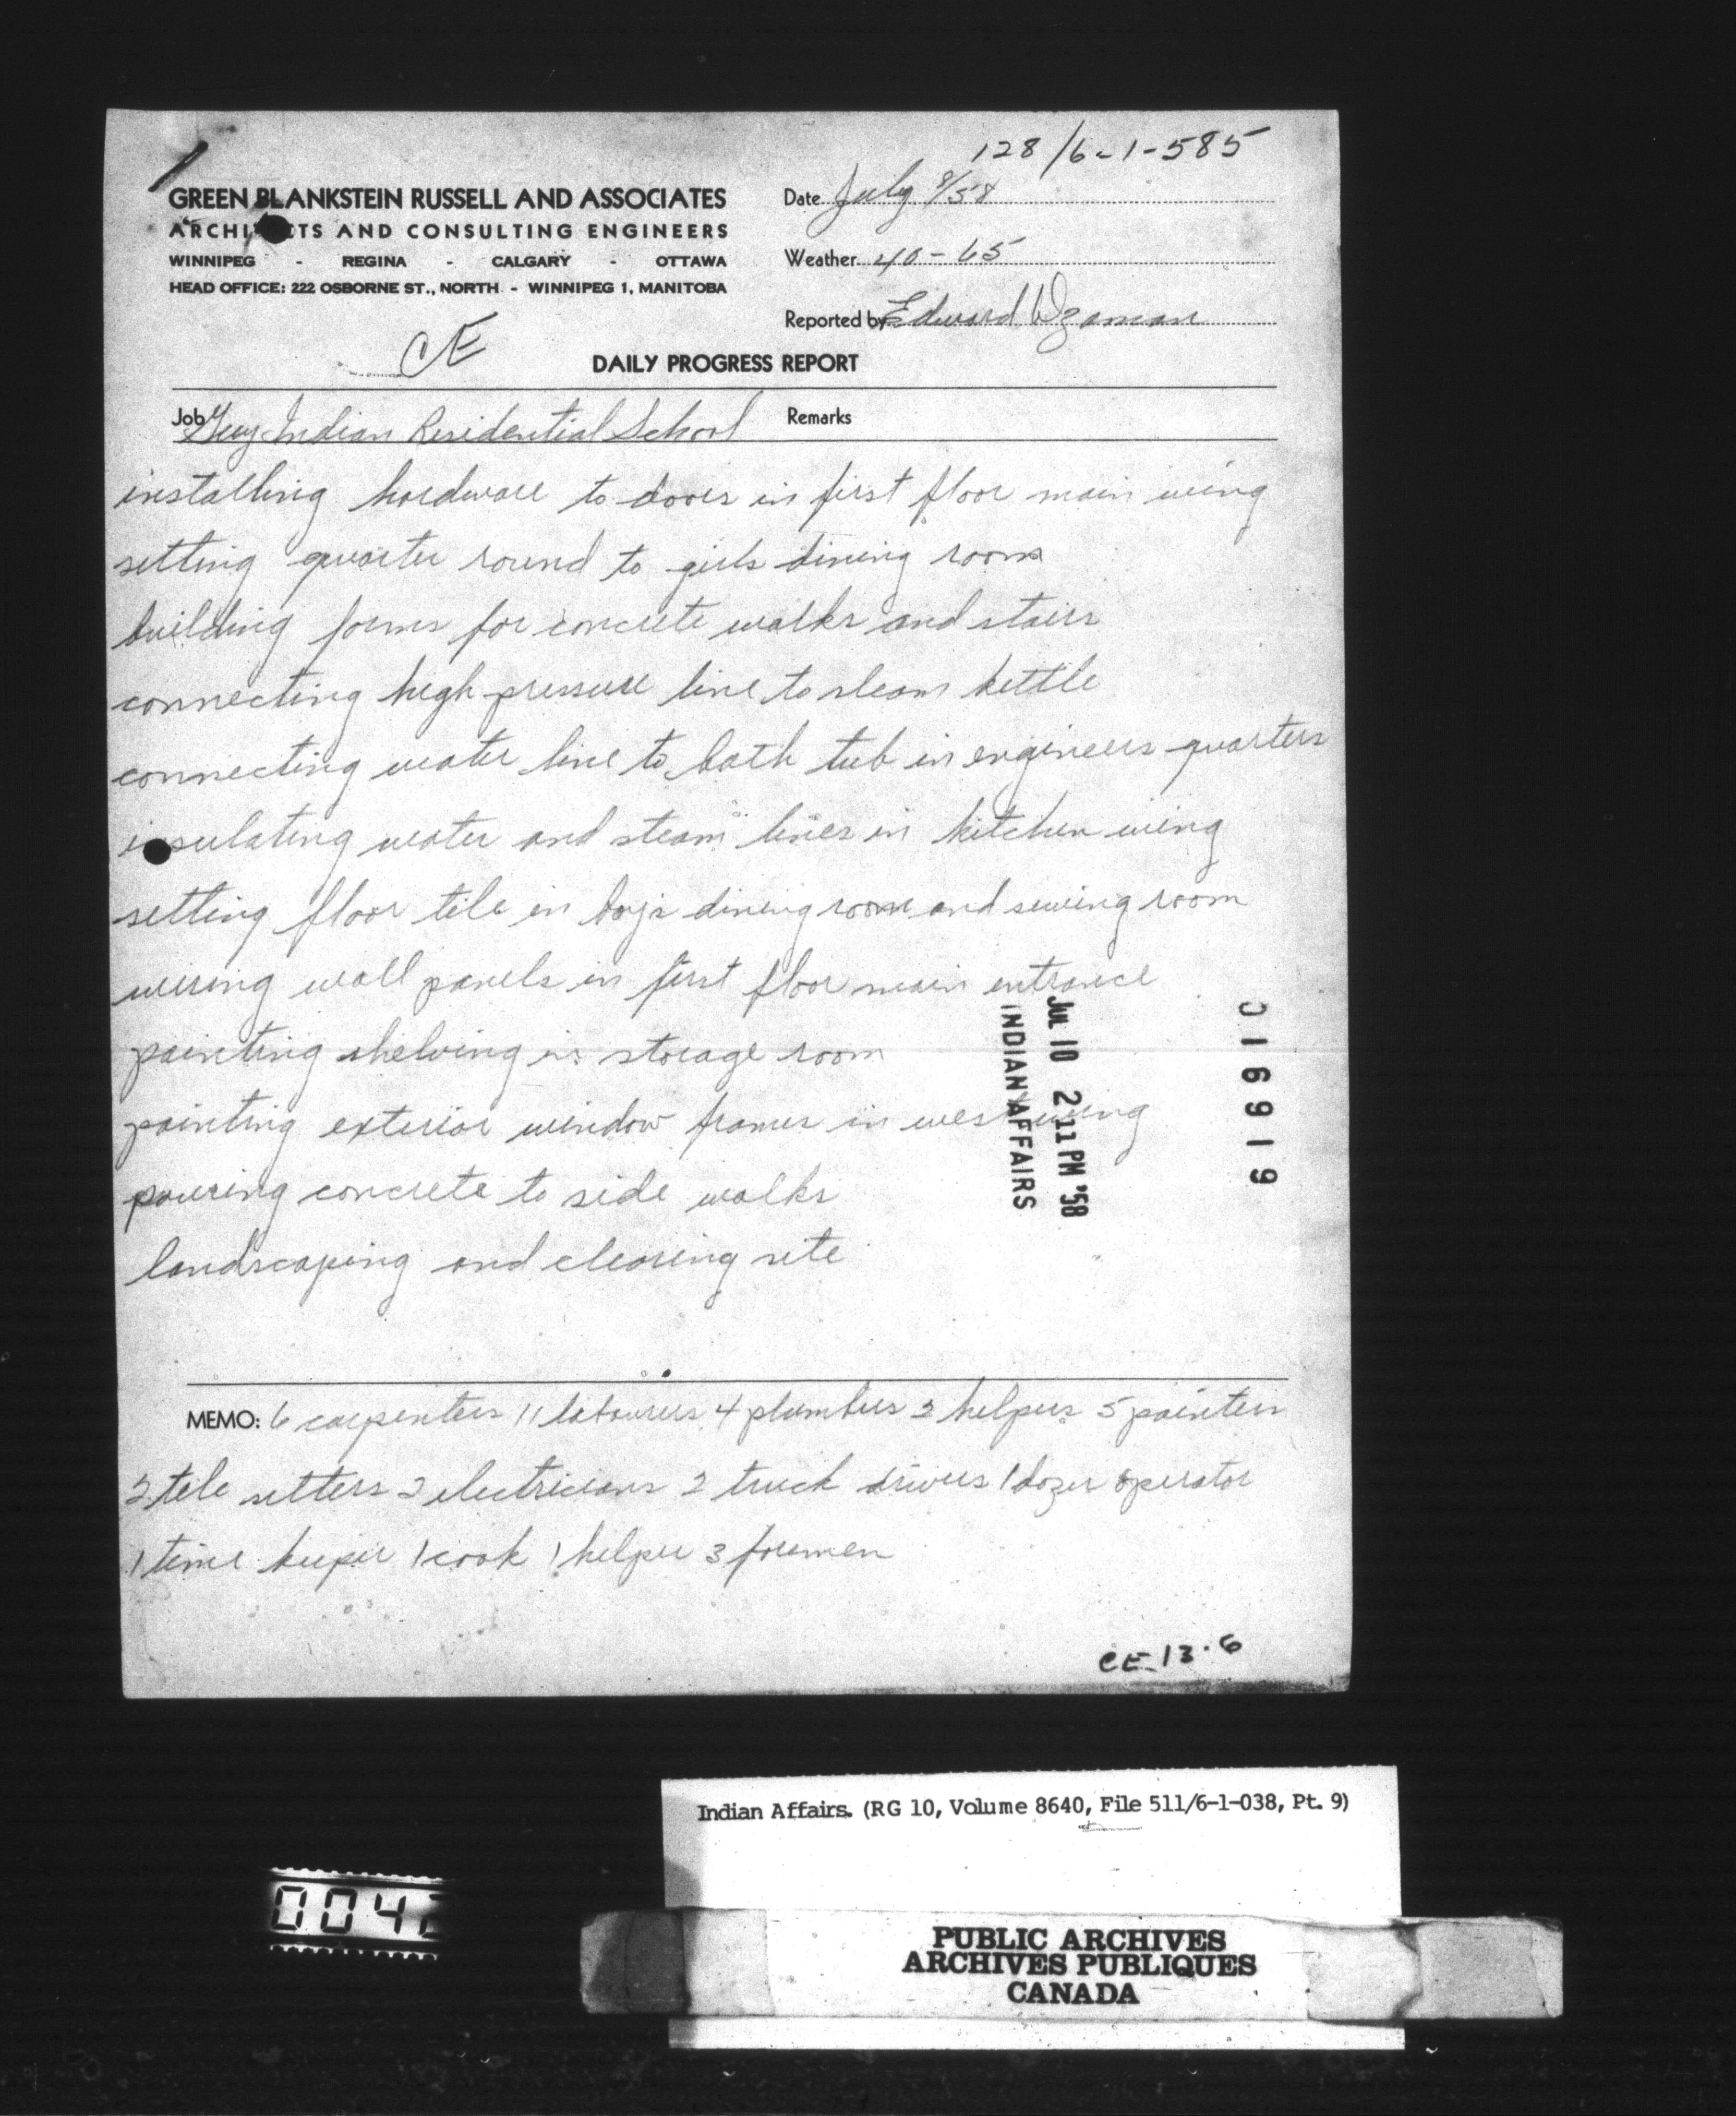 128/6-1-585
GREEN BLANKSTEIN RUSSELL AND ASSOCIATES
ARCHITECTS AND CONSULTING ENGINEERS
WINNIPEG - REGINA - CALGARY - OTTAWA
HEAD OFFICE: 222 OSBORNE ST., NORTH - WINNIPEG 1, MANITOBA
Date July 8/58
Weather 40-65
Reported by Edward
CE
DAILY PROGRESS REPORT
Job Guy Indian Residential School Remarks
installing hardware to doors in first floor main wing
setting quarter round to girls dining room
building forms for concrete walks and stairs
connecting high pressure line to steam kettle
connecting water line to bath tub in engineers quarters
insulating water and steam lines in kitchen wing
setting floor tile in boys dining room and sewing room
wiring wall panels in first floor main entrance
painting shelving in storage room
painting exterior window frames in west wing
pouring concrete to side walks
landscaping and clearing site
JUL 10 2 11 PM '58
INDIAN AFFAIRS
016919
MEMO: 6 carpenters 11 labourers 4 plumbers 2 helpers 5 painters
2 tile setters 2 electricians 2 truck drivers 1 dozer operator
1 time keeper 1 cook 1 helper 3 foremen
CE-13.6
Indian Affairs. (RG 10, Volume 8640, File 511/6-1-038, Pt. 9)
004
PUBLIC ARCHIVES
ARCHIVES PUBLIQUES
CANADA